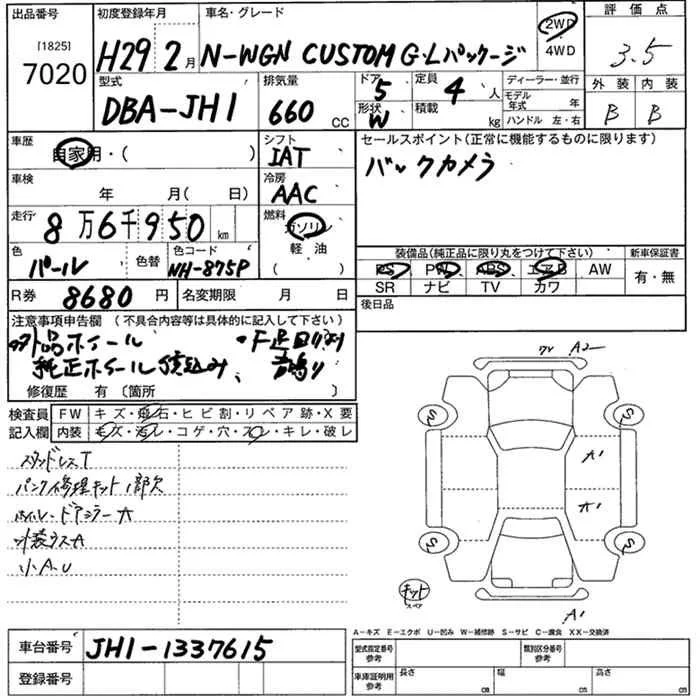 出品番号 初度登録年月 車名・グレード 評価点
[1825]
7020 H29 2月 N-WGN CUSTOM G・Lパッケージ 2WD 4WD 3.5
型式 排気量 ドア 5 定員 4人 ディーラー・並行 外装 内装
DBA-JH1 660 CC 形状 W 積載 kg モデル年式 年 B B
ハンドル 左・右
車歴 自家用・( ) シフト IAT セールスポイント(正常に機能するものに限ります)
バックカメラ
車検 年 月( 日) 冷房 AAC
走行 8万6千950km 燃料 ガソリン 軽油 ( )
色 パール 色替 色コード NH-875P
装備品(純正品に限り丸をつけて下さい) 新車保証書
PS PW ABS エアB AW 有・無
SR ナビ TV カワ
R券 8680円 名変期限 月 日 後日品
注意事項申告欄(不具合内容等は具体的に記入して下さい)
外品ホイール
純正ホイール積込み、
・F足回り 音鳴り
修復歴 有〔箇所 〕
検査員記入欄 FW キズ・飛石・ヒビ割・リペア跡・X要
内装 キズ・汚レ・コゲ・穴・スレ・キレ・破レ
パンク修理キット1部欠
外装ウスA
小A.U
A2
S S
A1
A1
S S
キット
スペア
A1
A-キズ E-エクボ U-凹み W-補修跡 S-サビ C-腐食 XX-交換済
車台番号 JH1-1337615
登録番号
型式指定番号 参考 類別区分番号 参考
車庫証明用 参考 長さ cm 幅 cm 高さ cm